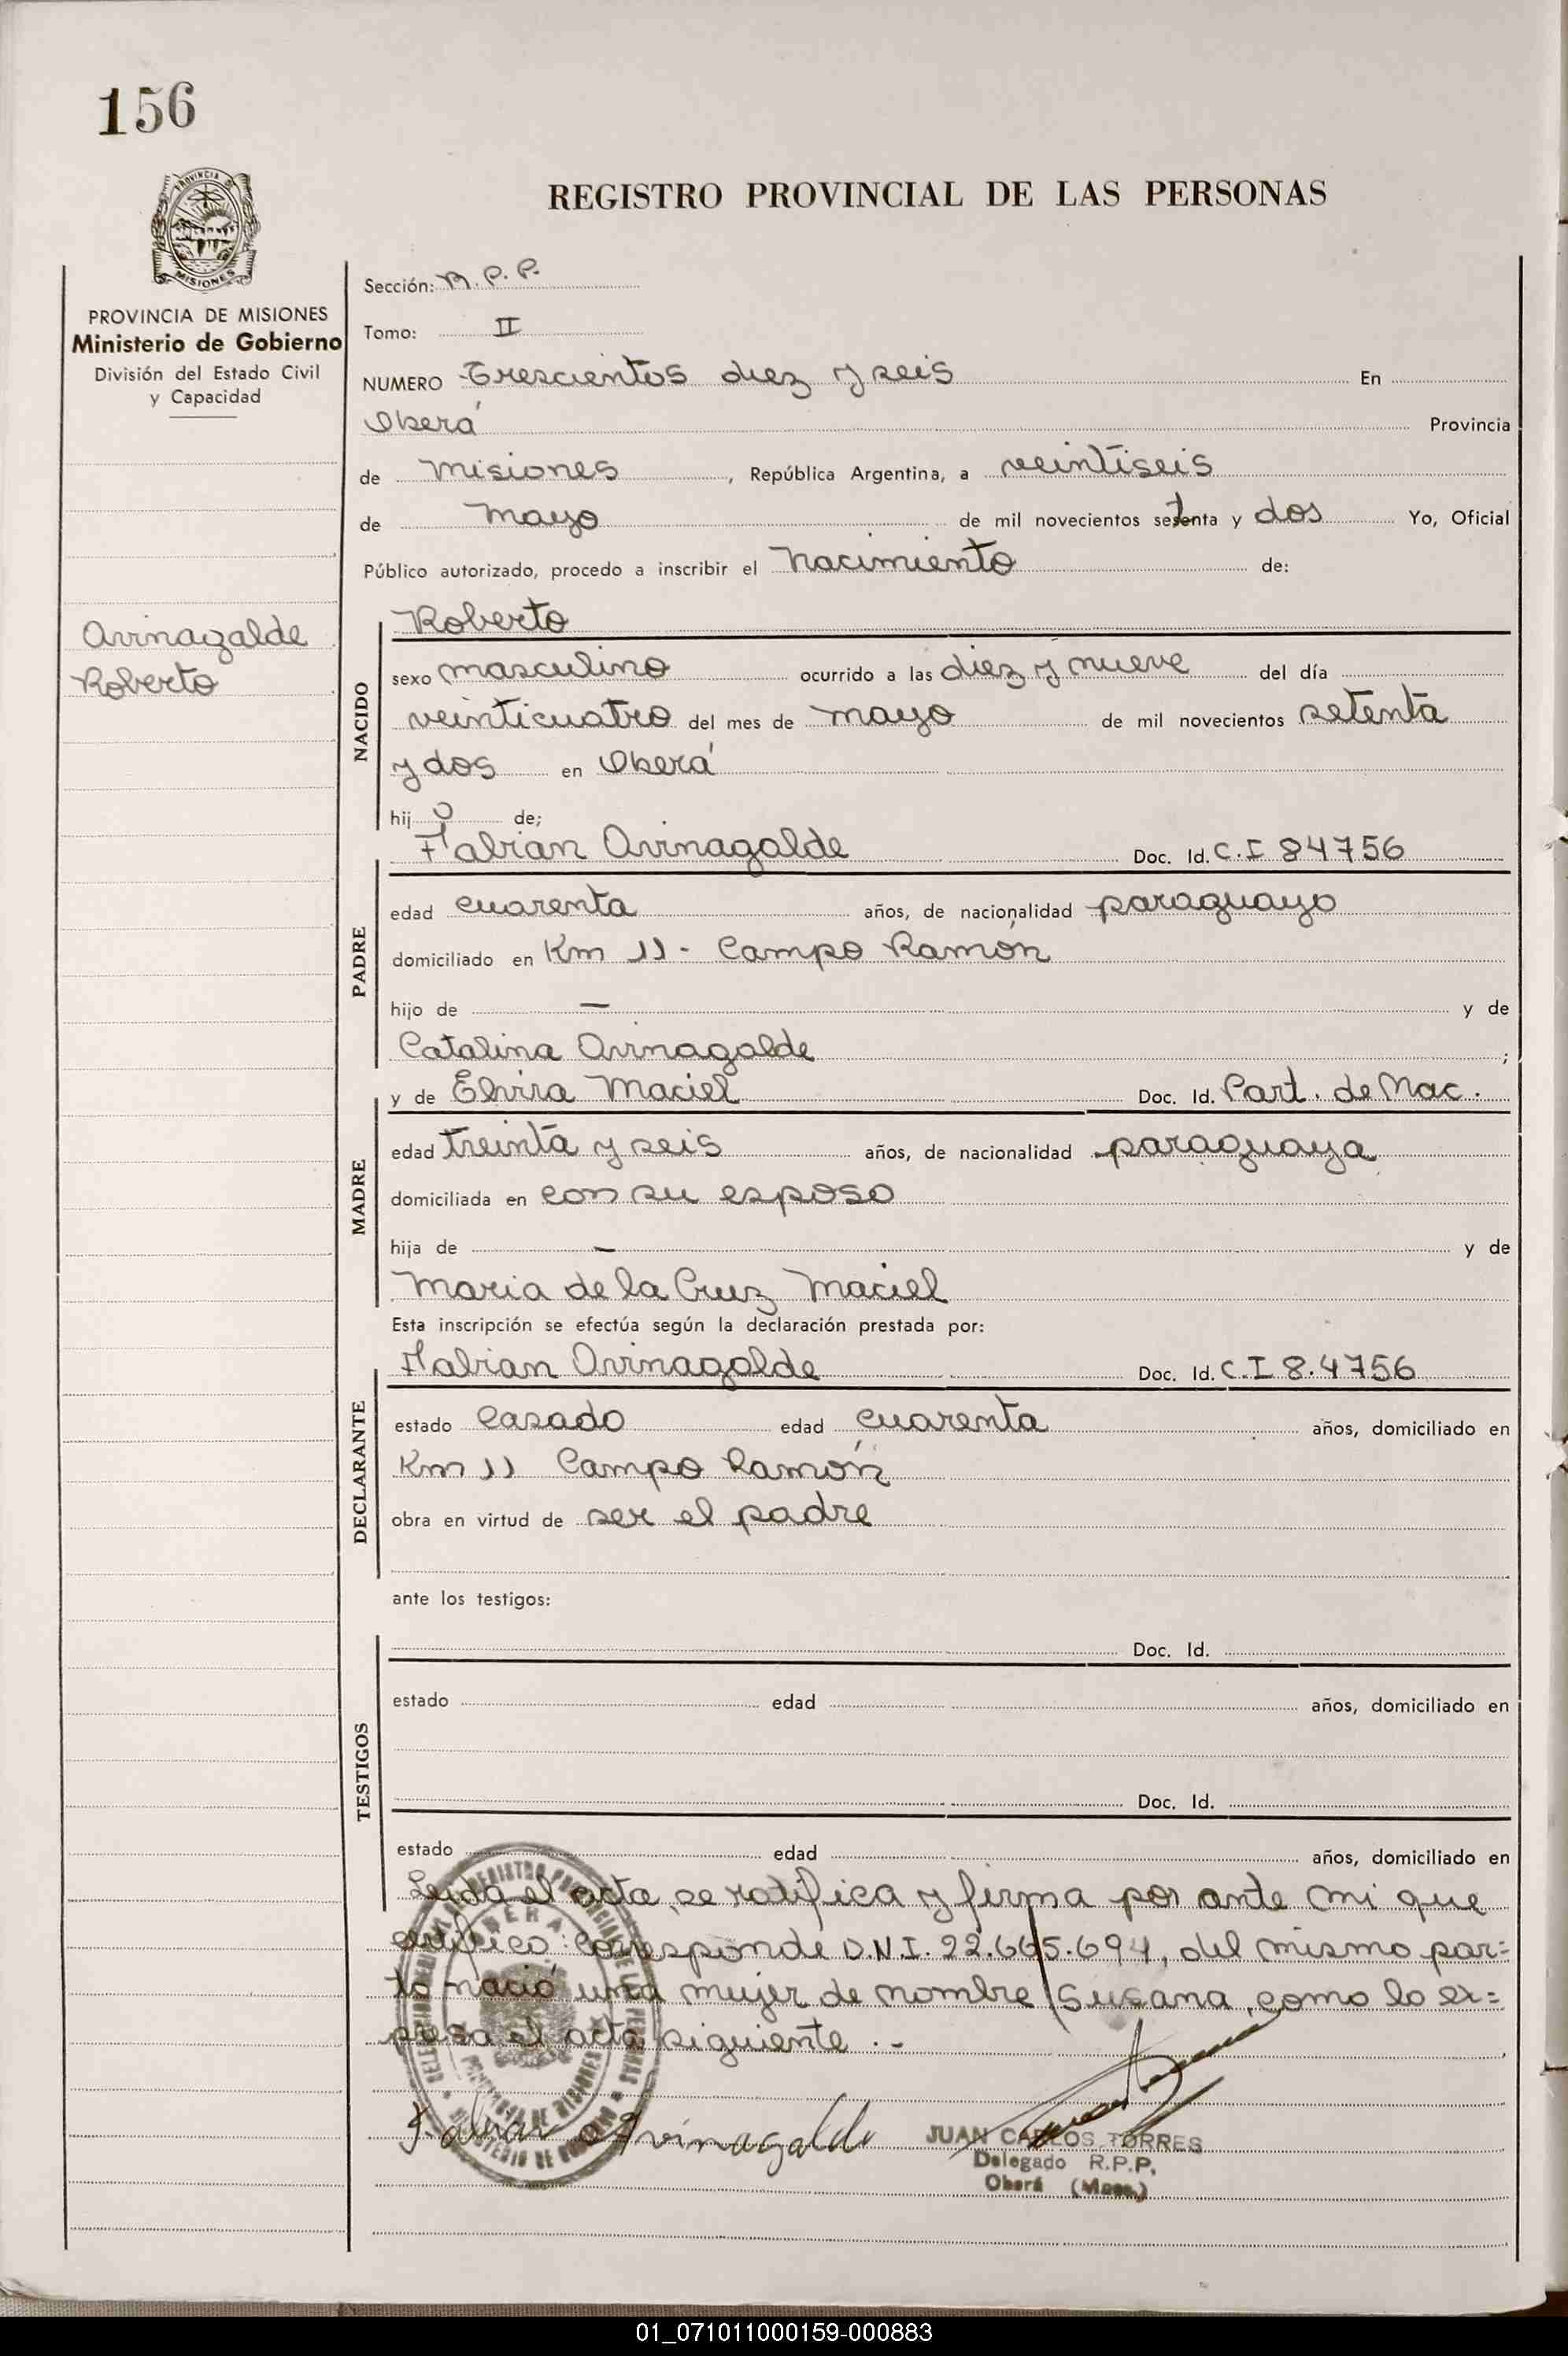 156
PROVINCIA DE MISIONES
REGISTRO PROVINCIAL DE LAS PERSONAS
PROVINCIA DE MISIONES
Ministerio de Gobierno
División del Estado Civil
y Capacidad
Avinagalde
Roberto
Sección: R. P. P.
Tomo: II
NUMERO Trescientos diez y seis En
Oberá Provincia
de Misiones, República Argentina, a veintiseis
de Mayo de mil novecientos setenta y dos Yo, Oficial
Público autorizado, procedo a inscribir el Nacimiento de:
NACIDO
Roberto
sexo masculino ocurrido a las diez y nueve del día
veinticuatro del mes de mayo de mil novecientos setenta
y dos en Oberá
hij o de;
PADRE
Fabian Avinagalde Doc. Id. C.I 84756
edad cuarenta años, de nacionalidad paraguayo
domiciliado en Km 11 - Campo Ramón
hijo de — y de
Catalina Avinagalde ;
MADRE
y de Elvira Maciel Doc. Id. Part. de Nac.
edad treinta y seis años, de nacionalidad paraguaya
domiciliada en con su esposo
hija de — y de
Maria de la Cruz Maciel
Esta inscripción se efectúa según la declaración prestada por:
DECLARANTE
Fabian Avinagalde Doc. Id. C.I 8.4756
estado Casado edad cuarenta años, domiciliado en
Km 11 Campo Ramón
obra en virtud de ser el padre
ante los testigos:
TESTIGOS
Doc. Id.
estado edad años, domiciliado en
Doc. Id.
estado edad años, domiciliado en
Leida el acta, se ratifica y firma por ante mi que
certifico: Corresponde D.N.I. 22.665.694, del mismo par=
to nació una mujer de nombre Susana, como lo ex=
presa el acta siguiente .-
Fabian Avinagalde
JUAN CARLOS TORRES
Delegado R.P.P.
Oberá (Mnes.)
01_071011000159-000883